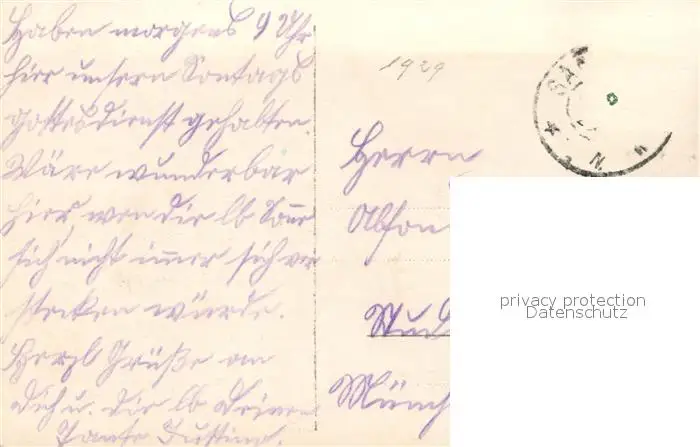 Haben morgens 9 Uhr
hier unsern Sontags
gottesdienst gehalten.
Wäre wunderbar
hier, wen die lb Sonne
sich nicht immer sich ver
stecken würde.
Herzl Grüße an
Dich u. die lb Deinen
Tante Justine.
1929
Herrn
Alfon
Stud
Münch
privacy protection
Datenschutz